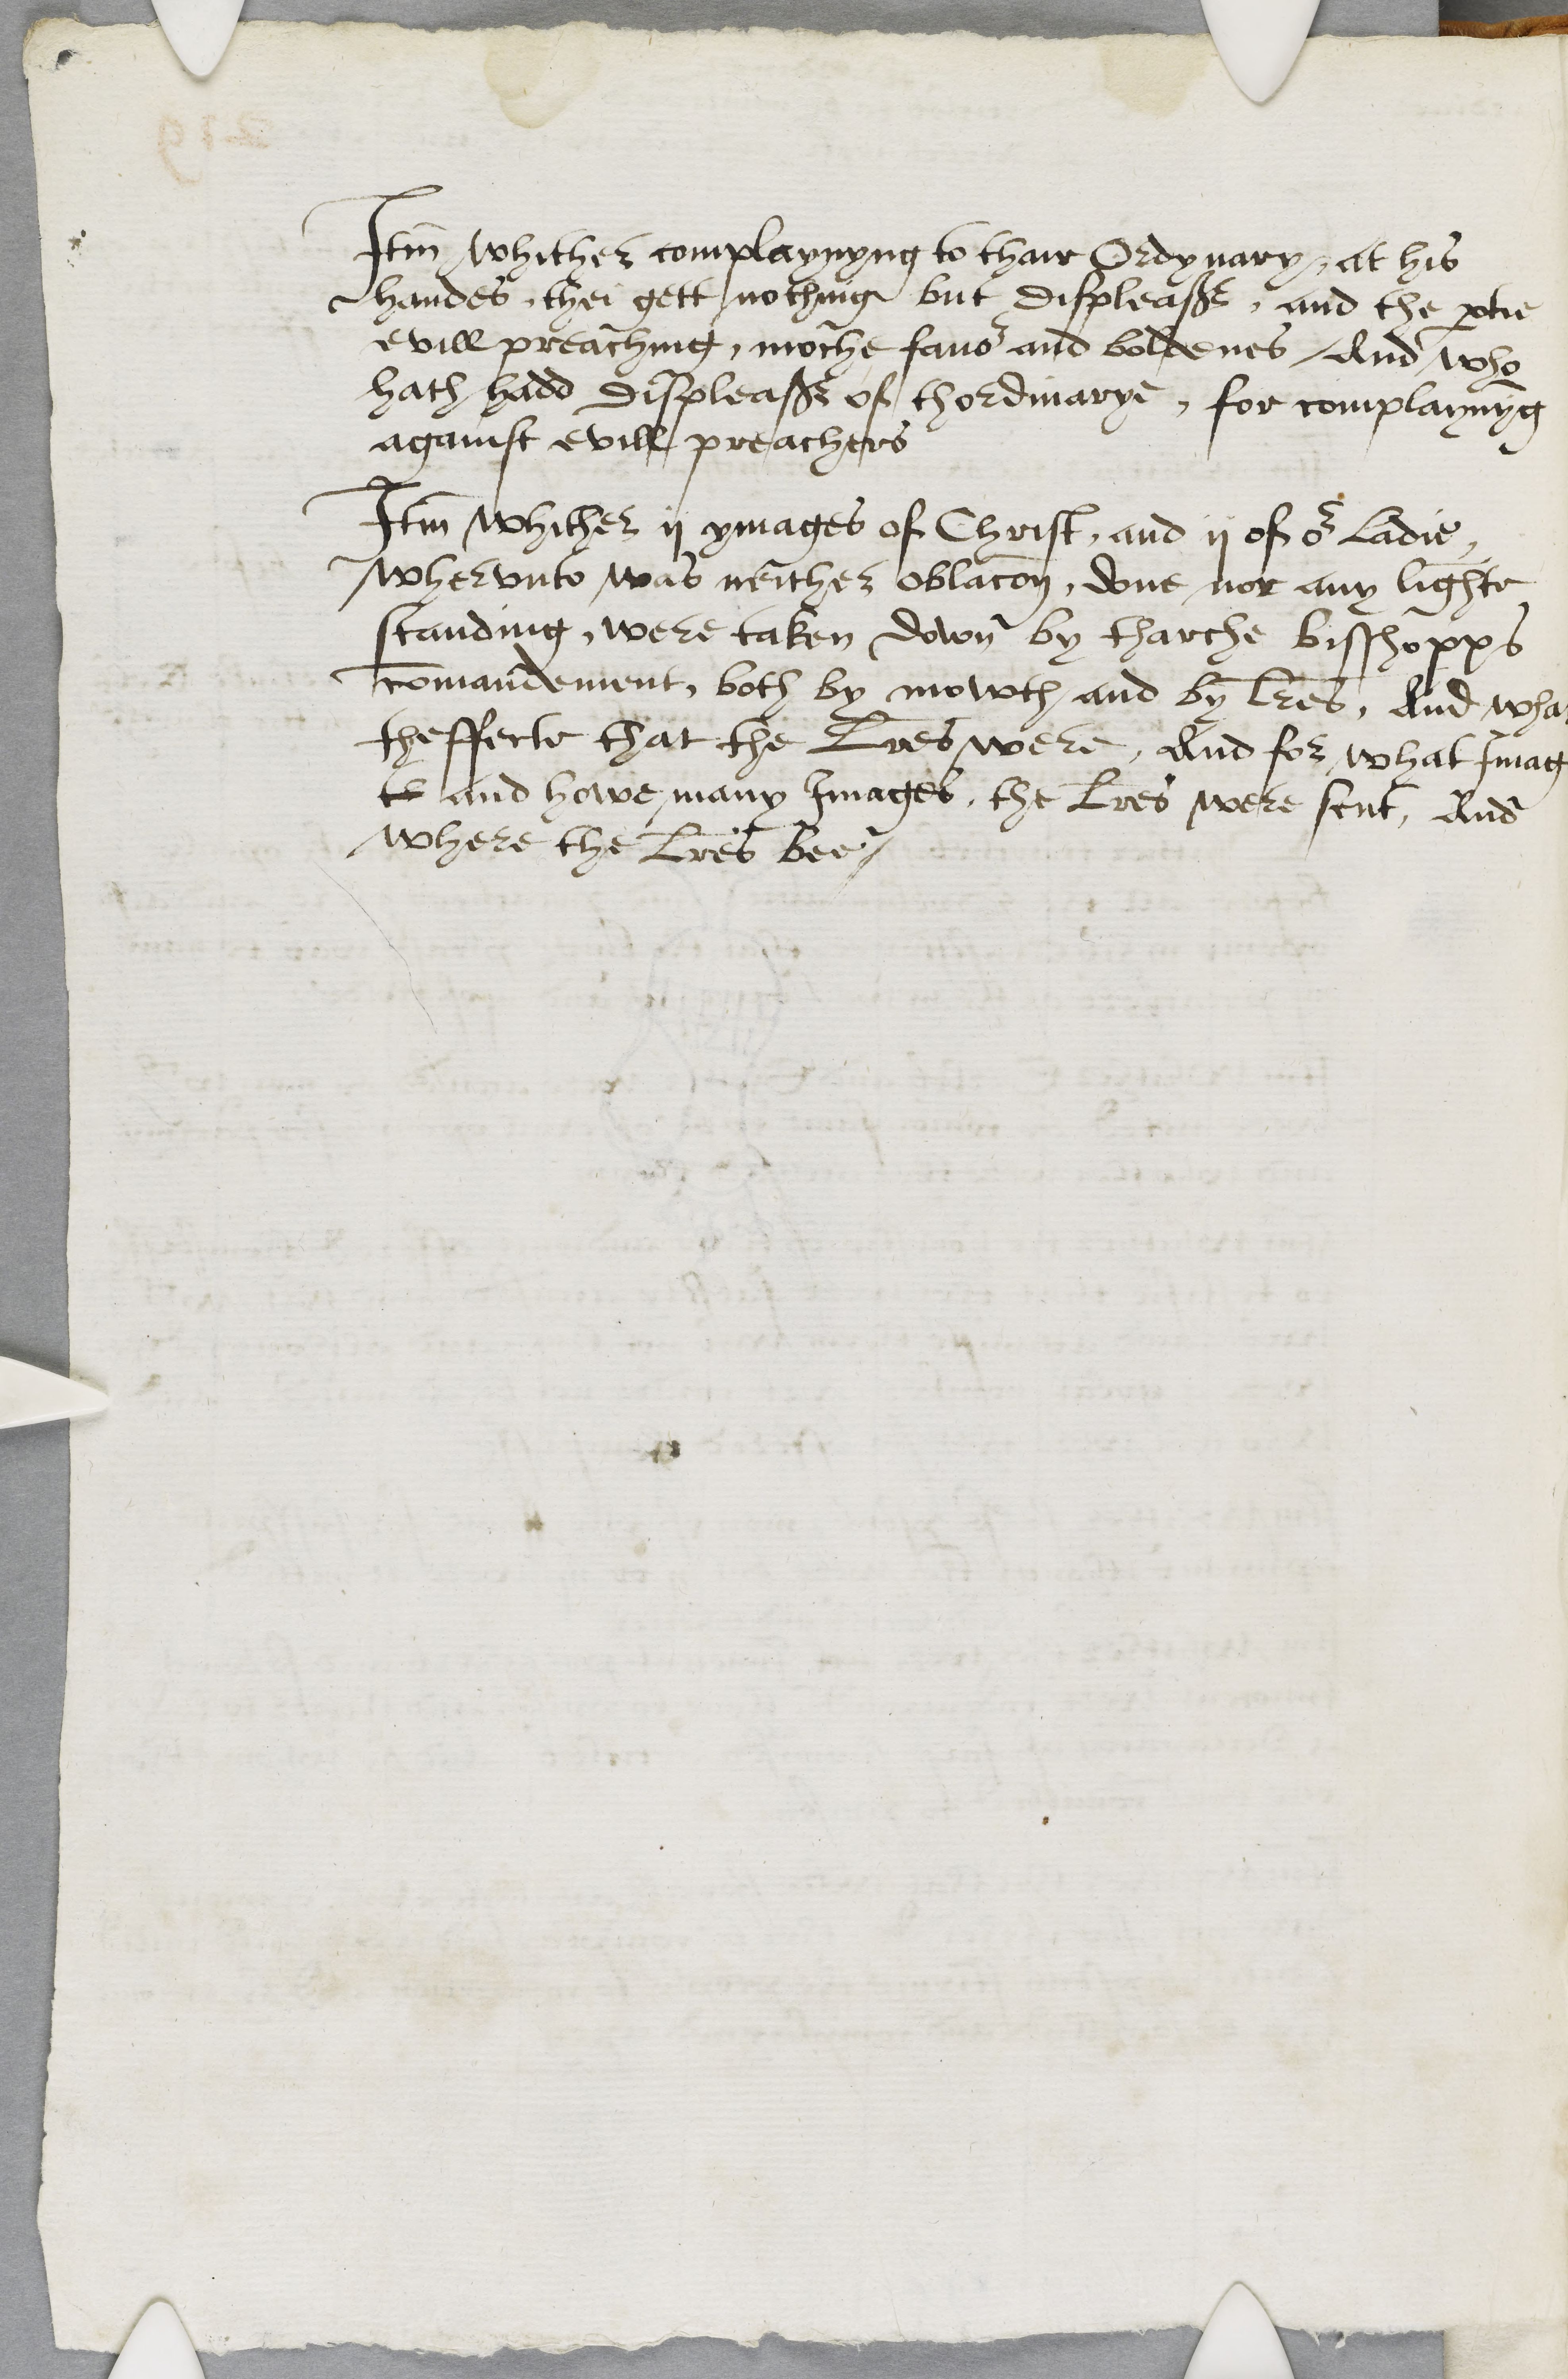 Itm̄ whither complaynyng to thair Ordynary, at his
handes, thei gett nothing but displeasr, and the ꝑtie
evill preaching, moche favor and boldenes / And who
hath hadd displeasr of thordinarye, for complaynyg
against evill preachers
Itm̄ whither ij ymages of Christ, and ij of or Ladie,
whervnto was neither oblacōn, done nor any lighte
standing, were taken down by tharche bisshopps
cōmandement, both by mowth and by lr̄es, And wha
theffecte that the Lr̄es were, And for what Imag
and howe many Images, the Lr̄es were sent, And
where the Lr̄es bee /